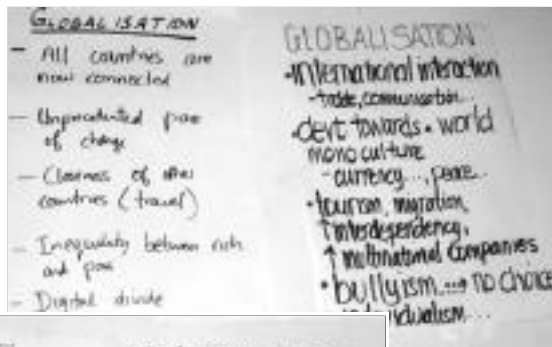 GLOBALISATION
- All countries are
now connected
- Unprecedented pace
of change
- Closeness of other
countries (travel)
- Inequality between rich
and poor
- Digital divide
GLOBALISATION
•International interaction
- trade, communication...
•devt towards • world
mono culture
- currency..., peace...
• tourism, migration,
↑interdependency,
↑ multinational companies
• bullyism ...→ no choice
individualism...